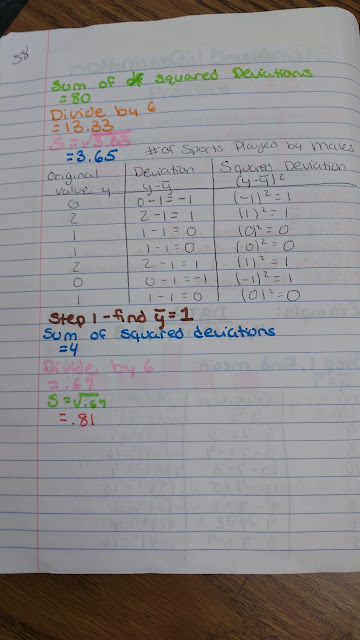 58
Sum of df squared Deviations
= 80
Divide by 6
= 13.33
S = √13.33
= 3.65
# of Sports Played by Males
Original Value y | Deviation y - ȳ | Squared Deviation (y - ȳ)²
0 | 0 - 1 = -1 | (-1)² = 1
2 | 2 - 1 = 1 | (1)² = 1
1 | 1 - 1 = 0 | (0)² = 0
1 | 1 - 1 = 0 | (0)² = 0
2 | 2 - 1 = 1 | (1)² = 1
0 | 0 - 1 = -1 | (-1)² = 1
1 | 1 - 1 = 0 | (0)² = 0
Step 1 - find ȳ = 1
Sum of squared deviations
= 4
Divide by 6
= .67
S = √.67
= .81